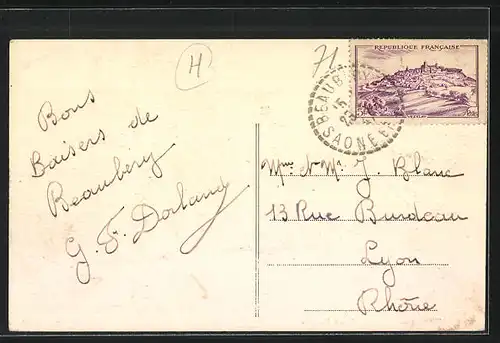 H
71
REPUBLIQUE FRANÇAISE
BEAUBERY
15
SAONE ET
Bons
Baisers de
Beaubery
G. F. Dorland
Mme et Mr. J. Blanc
13 Rue Burdeau
Lyon
Rhône